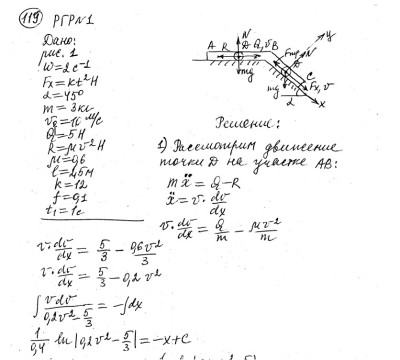 119 РГР №1
Дано:
рис. 1
W=2c⁻¹
Fx=kt²H
α=45°
m=3кг
v₀=10 м/с
Q=5H
R=μv²H
μ=0,6
l=2,5м
k=12
f=0,1
t₁=1c
A R N D Q, v̄ B
mg
Fтр N y
D
C
mg Fx, v
α x
Решение:
1) Рассмотрим движение
точки D на участке AB:
mẍ = Q-R
ẍ = v·dv/dx
v·dv/dx = Q/m - μv²/m
v·dv/dx = 5/3 - 0,6v²/3
v·dv/dx = 5/3 - 0,2v²
∫ vdv/(0,2v² - 5/3) = -∫dx
1/0,4 ln|0,2v² - 5/3| = -x+C